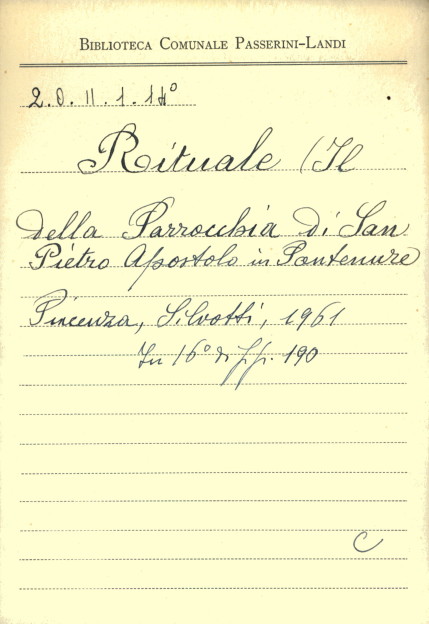 BIBLIOTECA COMUNALE PASSERINI-LANDI
2.O.II.1.14°
Rituale (Il
della Parrocchia di San
Pietro Apostolo in Pontenure
Piacenza, Silvotti, 1961
In 16° di pp. 190
C